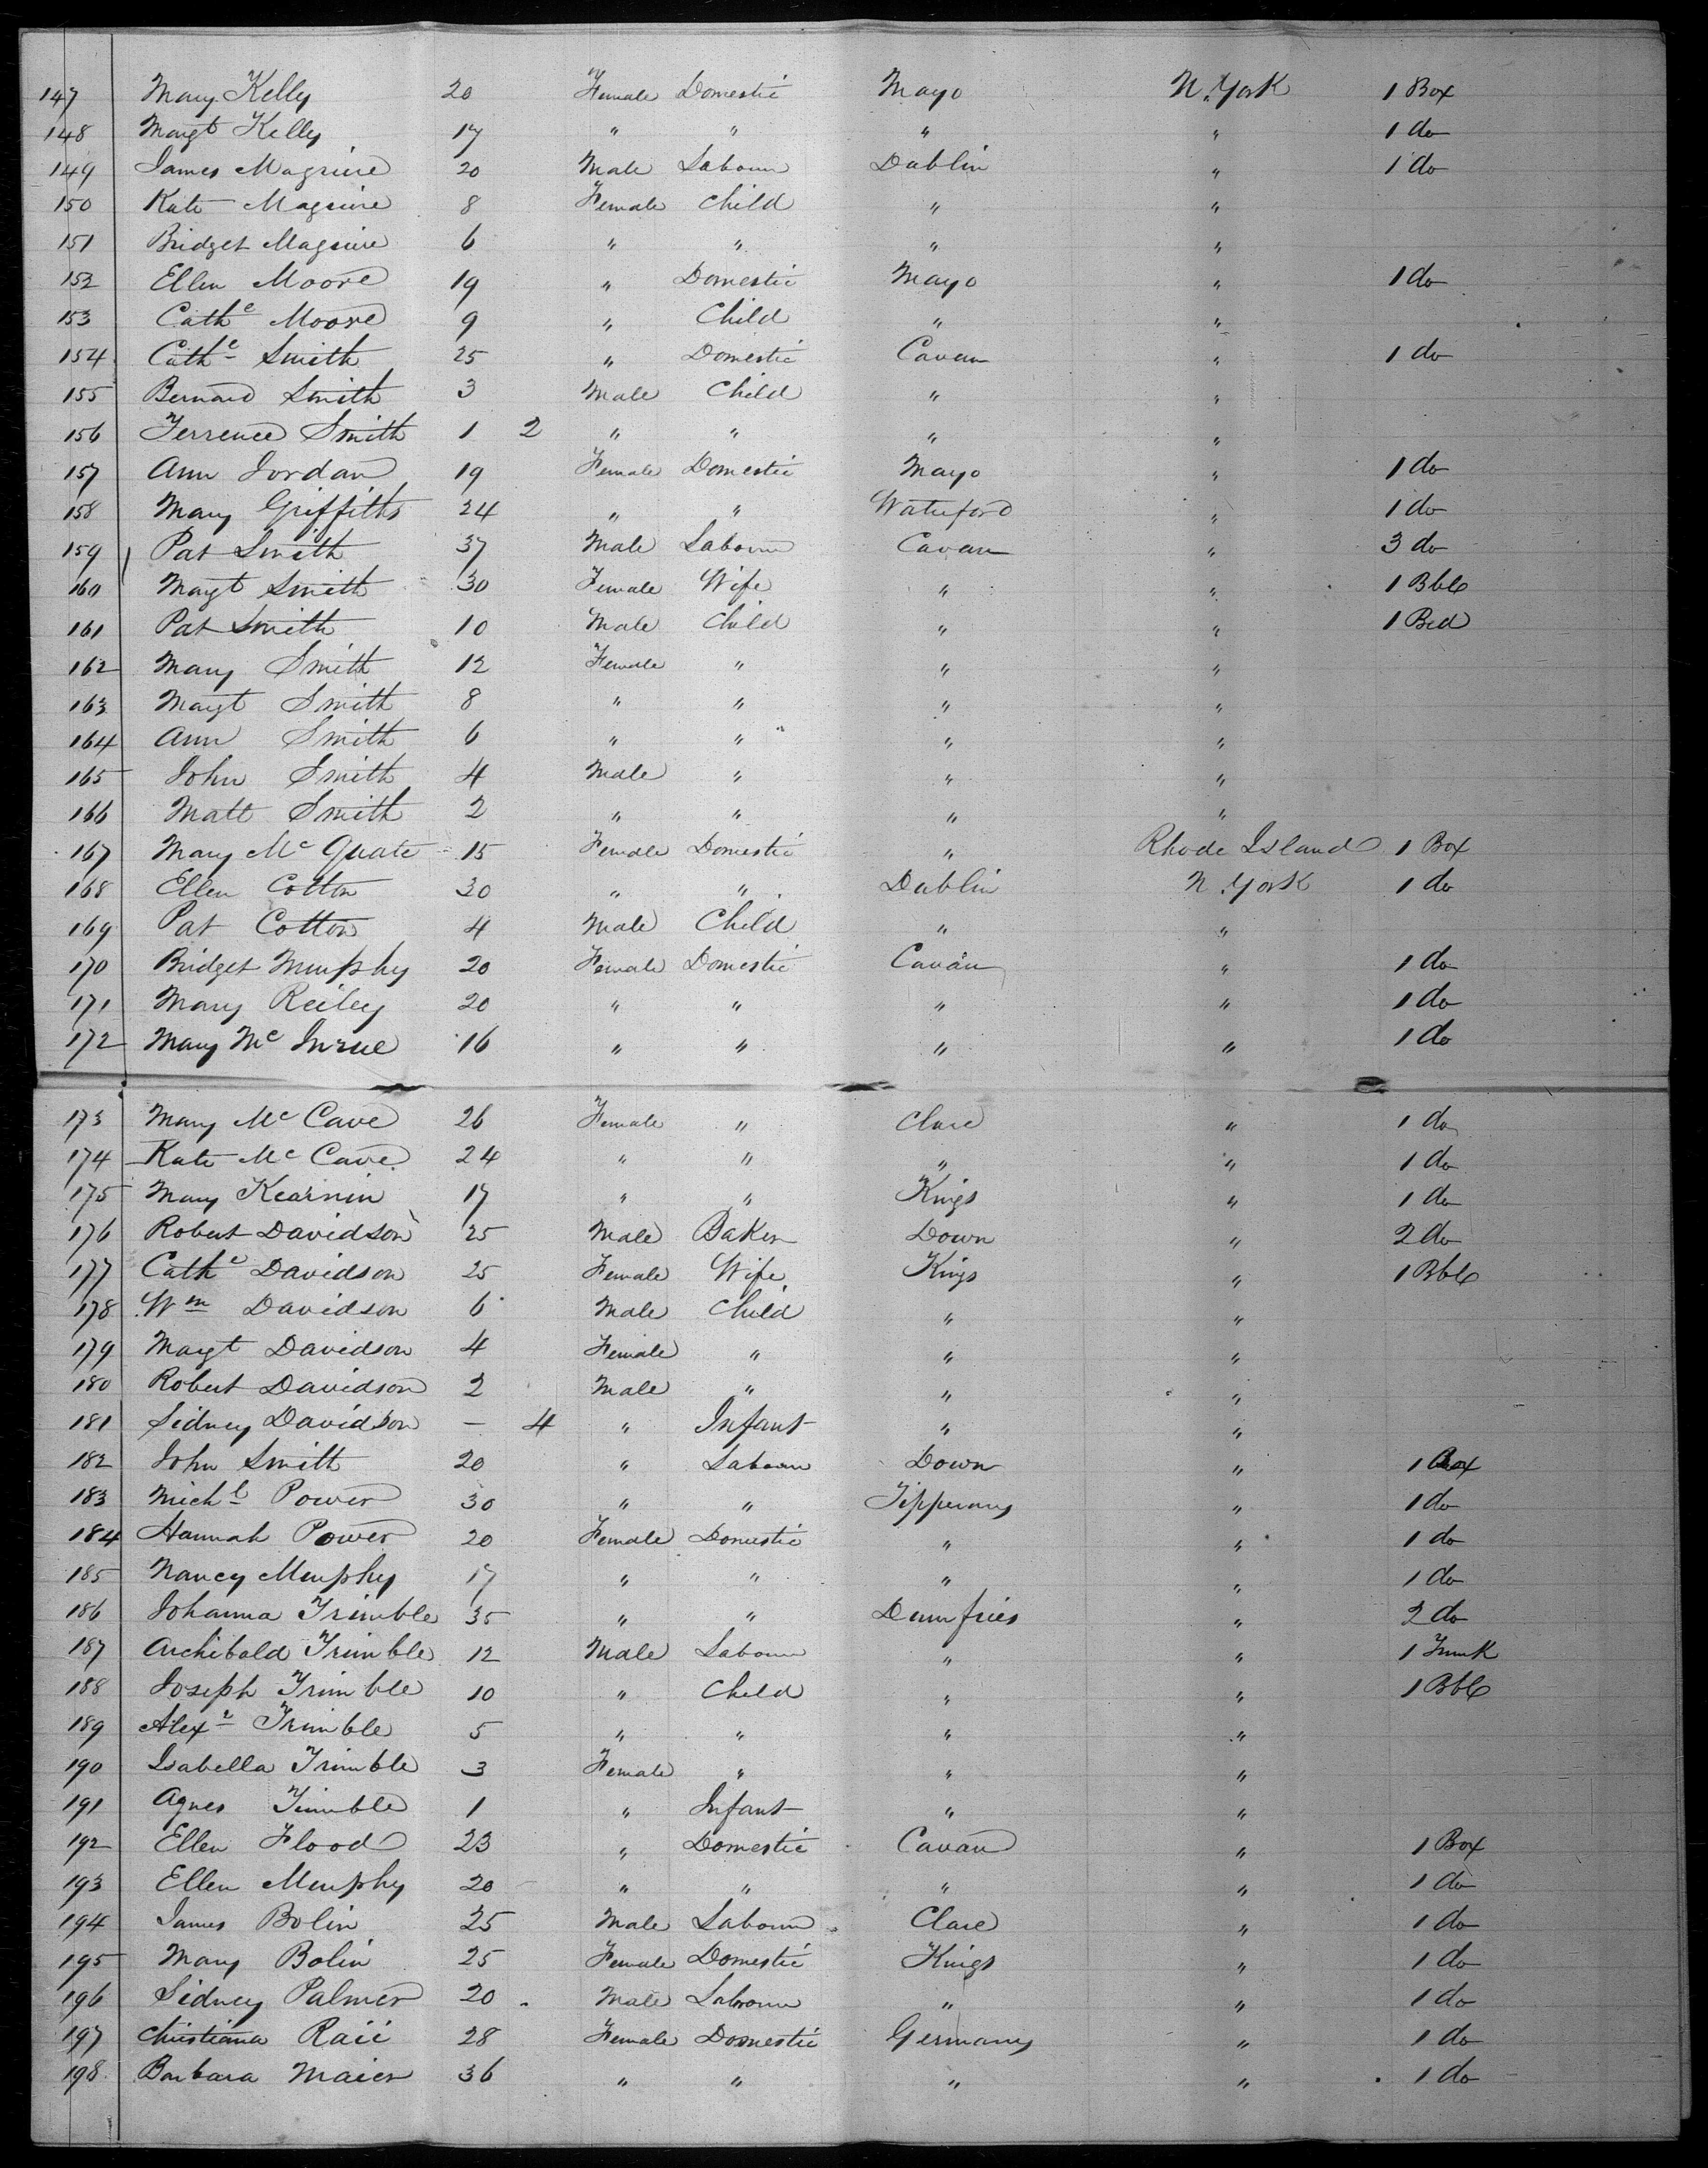 147 Mary Kelly 20 Female Domestic Mayo N. York 1 Box
148 Margt Kelly 17 " " " " 1 do
149 James Maguire 20 Male Labourer Dublin " 1 do
150 Kate Maguire 8 Female Child " "
151 Bridget Maguire 6 " " " "
152 Ellen Moore 19 " Domestic Mayo " 1 do
153 Cathe Moore 9 " Child " "
154 Cathe Smith 25 " Domestic Cavan " 1 do
155 Bernard Smith 3 Male Child " "
156 Terrence Smith 1 2 " " " "
157 Ann Jordan 19 Female Domestic Mayo " 1 do
158 Mary Griffiths 24 " " Waterford " 1 do
159 Pat Smith 37 Male Labourer Cavan " 3 do
160 Margt Smith 30 Female Wife " " 1 Bbl
161 Pat Smith 10 Male Child " " 1 Bed
162 Mary Smith 12 Female " " "
163 Margt Smith 8 " " " "
164 Ann Smith 6 " " " "
165 John Smith 4 Male " " "
166 Matt Smith 2 " " " "
167 Mary Mc Quate 15 Female Domestic " Rhode Island 1 Box
168 Ellen Cotton 30 " " Dublin N. York 1 do
169 Pat Cotton 4 Male Child " "
170 Bridget Murphy 20 Female Domestic Cavan " 1 do
171 Mary Reiley 20 " " " " 1 do
172 Mary Mc Inrue 16 " " " " 1 do
173 Mary Mc Cave 26 Female " Clare " 1 do
174 Kate Mc Cave 24 " " " " 1 do
175 Mary Kearnin 17 " " Kings " 1 do
176 Robert Davidson 25 Male Baker Down " 2 do
177 Cathe Davidson 25 Female Wife Kings " 1 Bbl
178 Wm Davidson 6 Male Child " "
179 Margt Davidson 4 Female " " "
180 Robert Davidson 2 Male " " "
181 Sidney Davidson — 4 " Infant " "
182 John Smith 20 " Labourer Down " 1 Box
183 Michl Power 30 " " Tipperary " 1 do
184 Hannah Power 20 Female Domestic " " 1 do
185 Nancy Murphy 17 " " " " 1 do
186 Johanna Trimble 35 " " Dumfries " 2 do
187 Archibald Trimble 12 Male Labourer " " 1 Trunk
188 Joseph Trimble 10 " Child " " 1 Bbl
189 Alexr Trimble 5 " " " "
190 Isabella Trimble 3 Female " " "
191 Agnes Trimble 1 " Infant " "
192 Ellen Flood 23 " Domestic Cavan " 1 Box
193 Ellen Murphy 20 " " " " 1 do
194 James Bolin 25 Male Labourer Clare " 1 do
195 Mary Bolin 25 Female Domestic Kings " 1 do
196 Sidney Palmer 20 Male Labourer " " 1 do
197 Christiana Raii 28 Female Domestic Germany " 1 do
198 Barbara Maier 36 " " " " 1 do